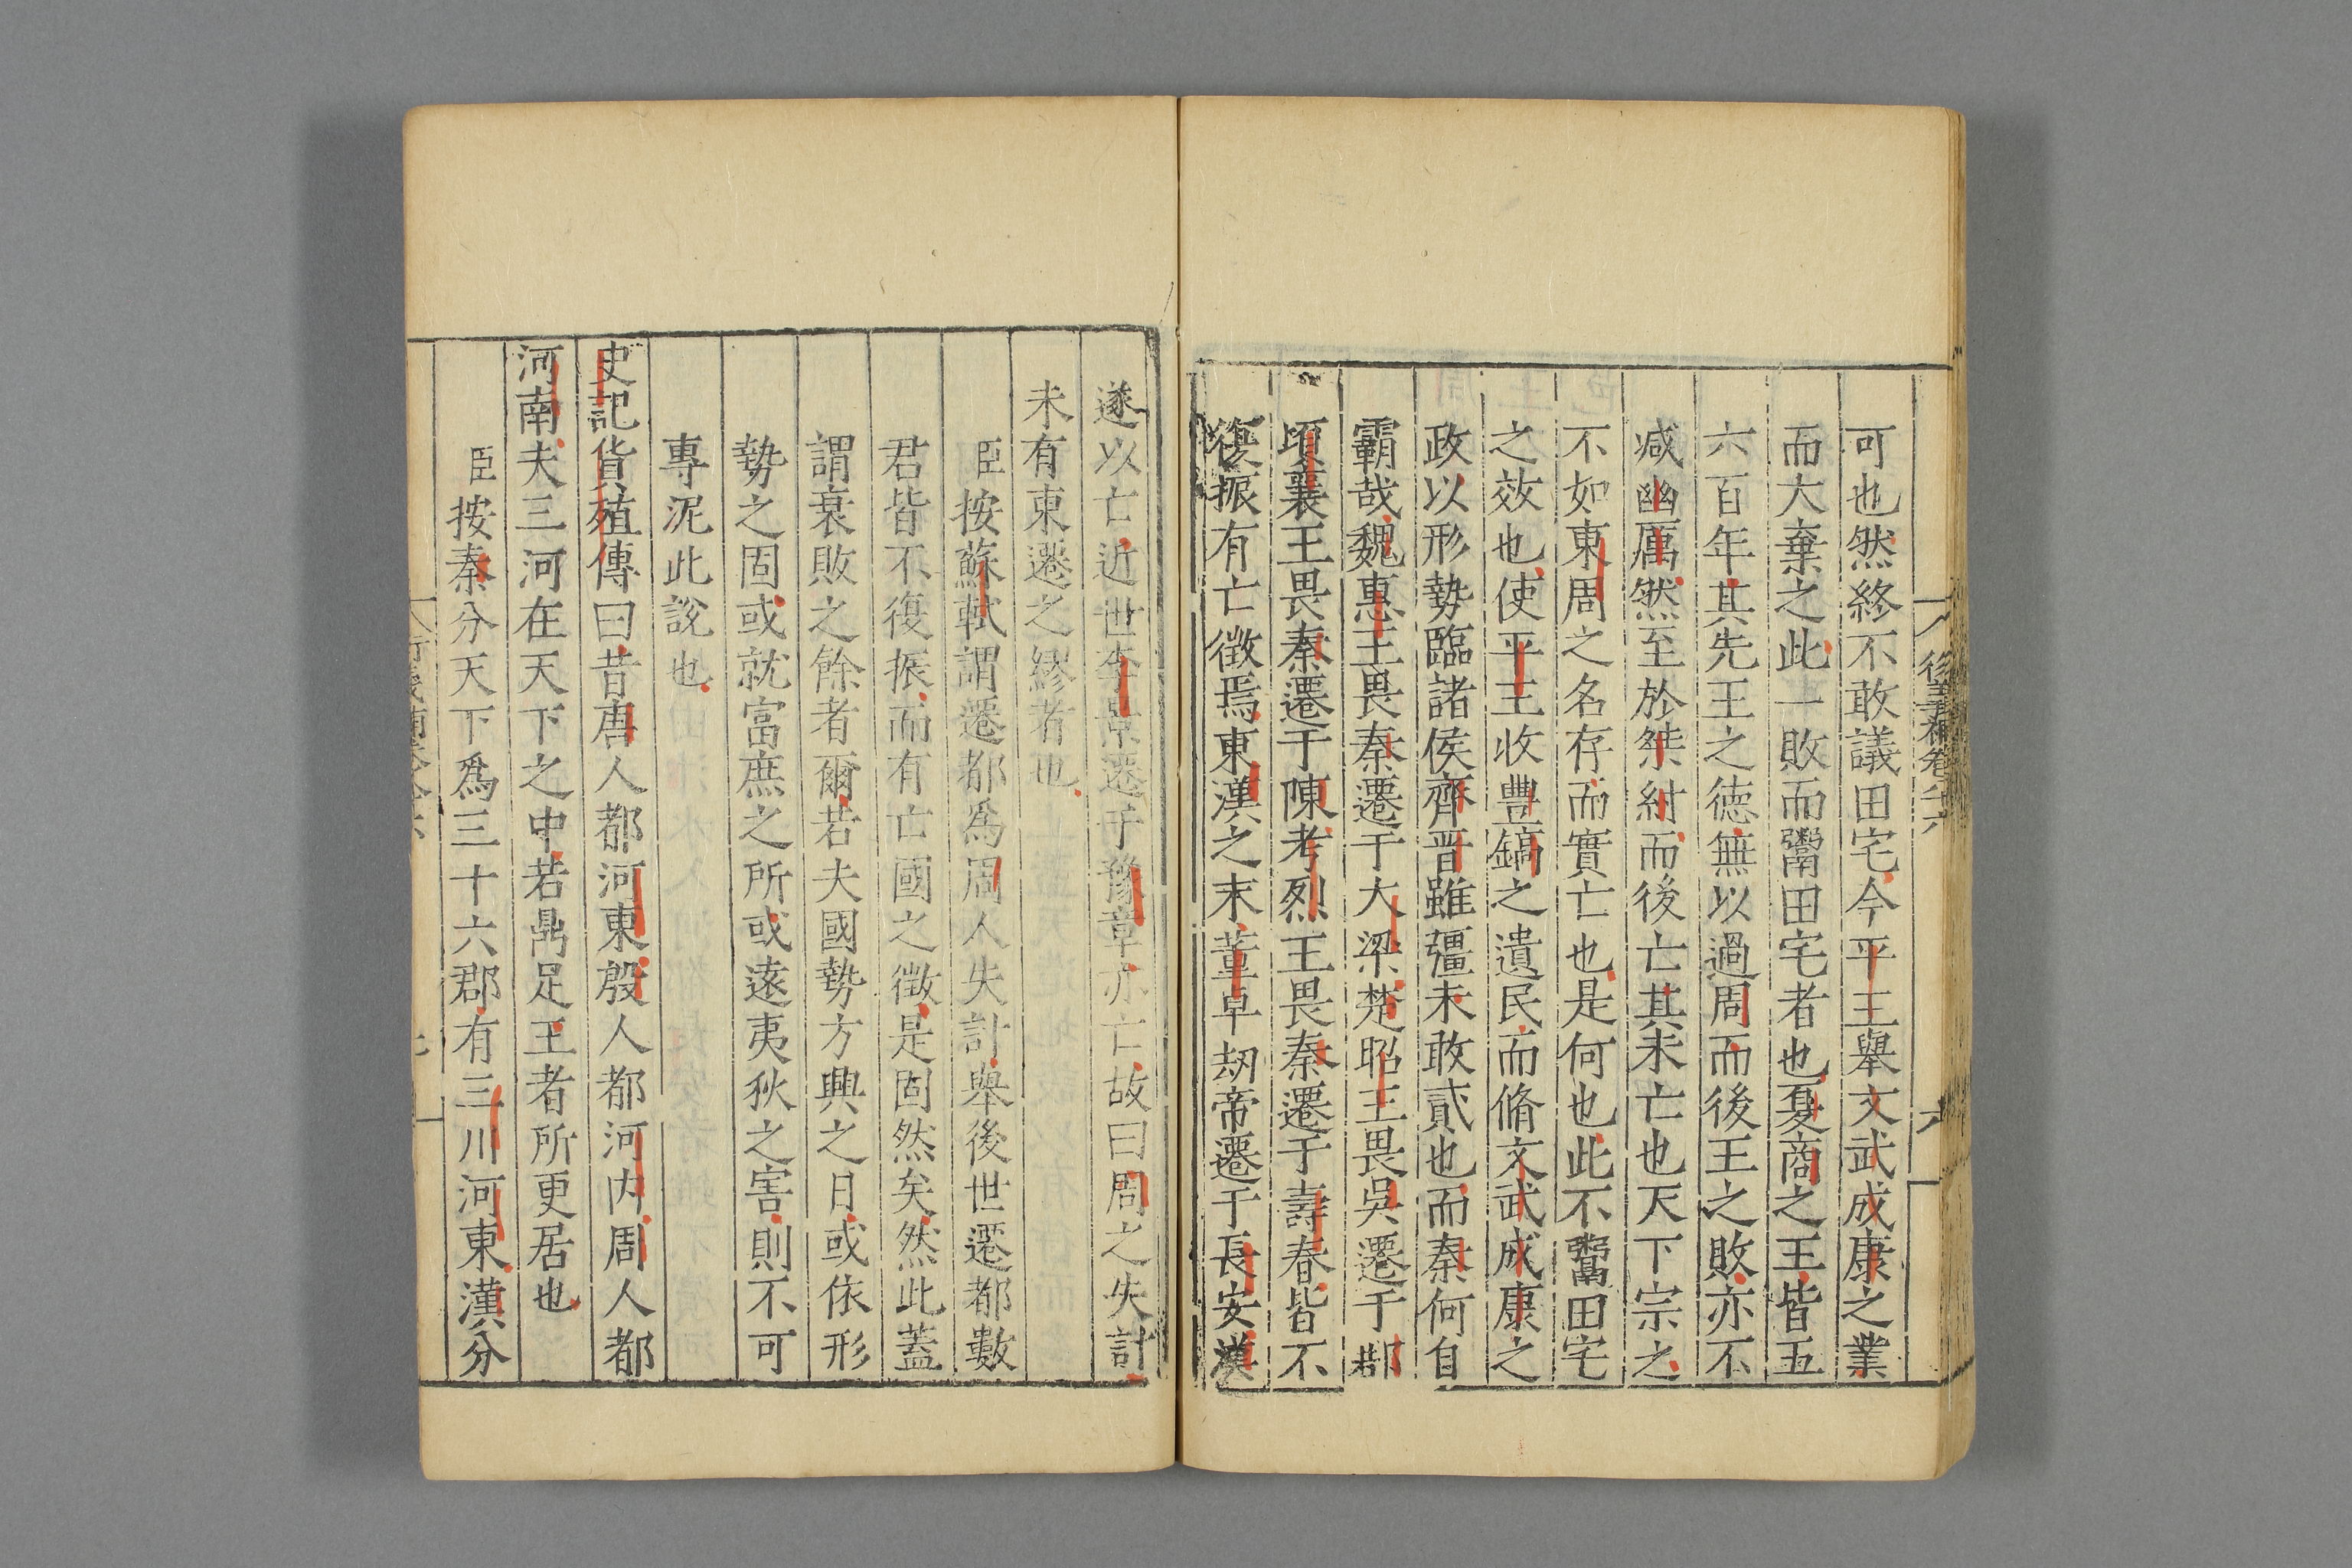 可也然終不敢議田宅今平王舉文武成康之業
而大棄之此一敗而鬻田宅者也夏商之王皆五
六百年其先王之德無以過周而後王之敗亦不
减幽厲然至於桀紂而後亡其未亡也天下宗之
不如東周之名存而實亡也是何也此不鬻田宅
之效也使平王收豐鎬之遺民而脩文武成康之
政以形勢臨諸侯齊晋雖彊未敢貳也而秦何自
霸哉魏惠王畏秦遷于大梁楚昭王畏吳遷于鄀
頃襄王畏秦遷于陳考烈王畏秦遷于壽春皆不
復振有亡徵焉東漢之末董卓刼帝遷于長安漢
遂以亡近世李景遷于豫章亦亡故曰周之失計
未有東遷之繆者也
臣按蘇軾謂遷都爲周人失計舉後世遷都數
君皆不復振而有亡國之徵是固然矣然此蓋
謂衰敗之餘者爾若夫國勢方興之日或依形
勢之固或就富庶之所或遠夷狄之害則不可
專泥此說也
史記貨殖傳曰昔唐人都河東殷人都河内周人都
河南夫三河在天下之中若鼎足王者所更居也
臣按秦分天下爲三十六郡有三川河東漢分